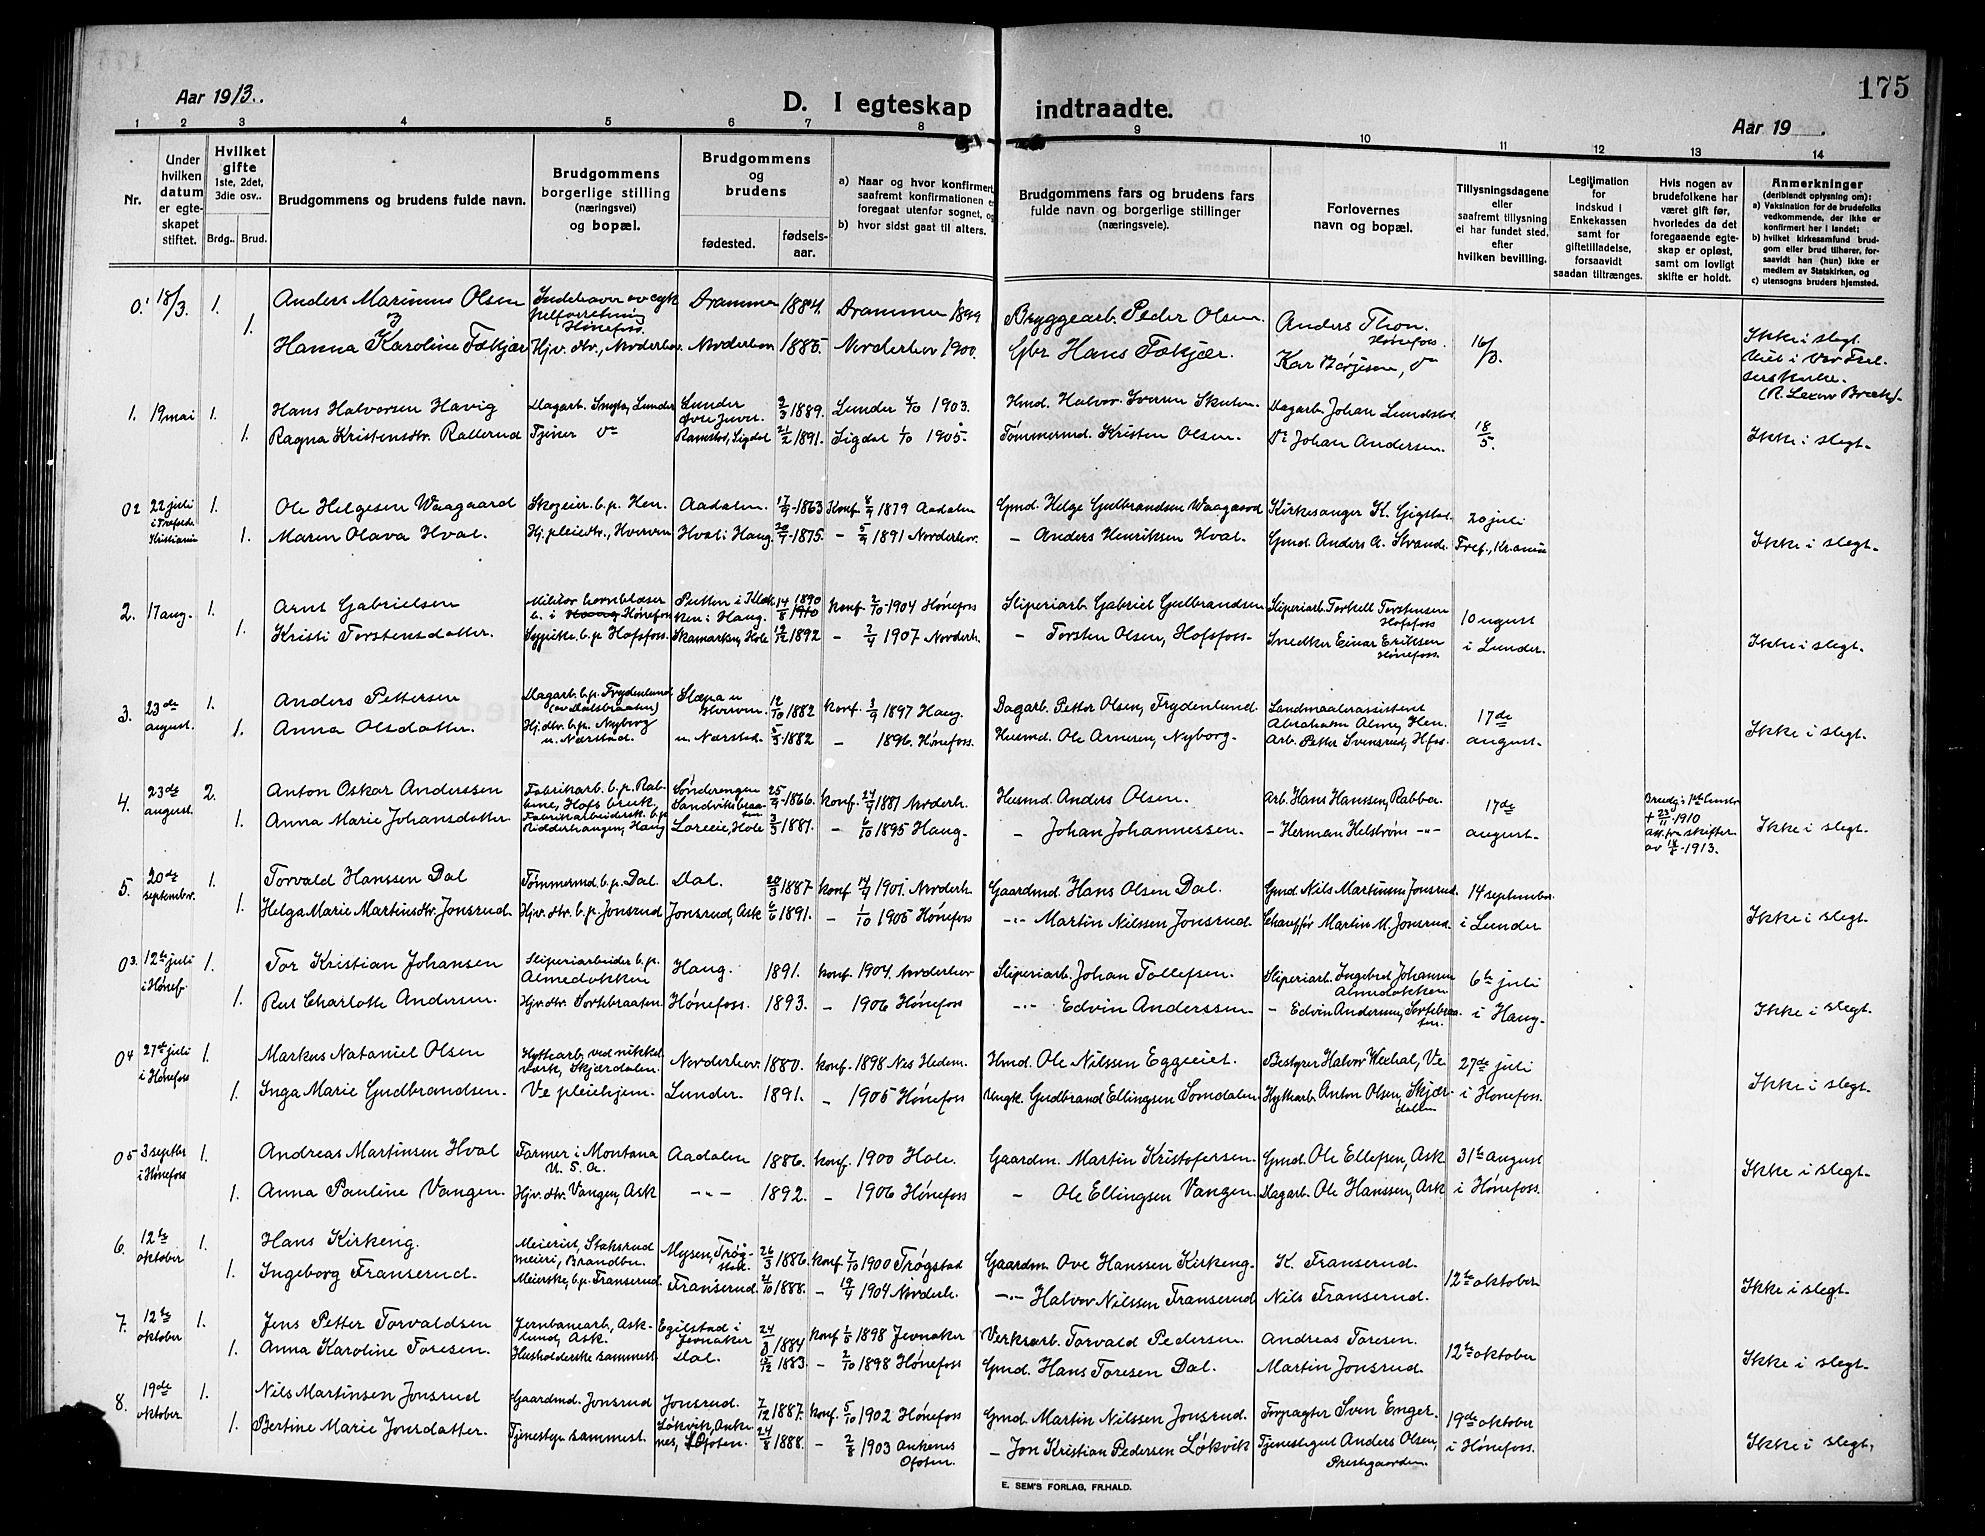 175
Aar 1913.
D. I egteskap indtraadte.
Aar 19
1 2 3 4 5 6 7 8 9 10 11 12 13 14
Nr.
Under hvilken datum er egteskapet stiftet.
Hvilket gifte 1ste, 2det, 3die osv..
Brdg.. Brud.
Brudgommens og brudens fulde navn.
Brudgommens borgerlige stilling (næringsvei) og bopæl.
Brudgommens og brudens
fødested. fødsels-aar.
a) Naar og hvor konfirmert, saafremt konfirmationen er foregaat utenfor sognet, og
b) hvor sidst gaat til alters.
Brudgommens fars og brudens fars fulde navn og borgerlige stillinger (næringsveie).
Forlovernes navn og bopæl.
Tillysningsdagene eller saafremt tillysning ei har fundet sted, efter hvilken bevilling.
Legitimation for indskud i Enkekassen samt for giftetilladelse, forsaavidt saadan tiltrænges.
Hvis nogen av brudefolkene har været gift før, hvorledes da det foregaaende egteskap er opløst, samt om lovligt skifte er holdt.
Anmerkninger (deriblandt oplysning om):
a) Vaksination for de brudefolks vedkommende, der ikke er konfirmert her i landet;
b) hvilket kirkesamfund brudgom eller brud tilhører, forsaavidt han (hun) ikke er medlem av Statskirken, og
c) utensogns bruders hjemsted.
0 1 18/3. 1. Anders Marinius Olsen Indehaver av cykkelforretning Hønefoss. Drammen 1884. Drammen 1899 Bryggearb. Peder Olsen. Anders Thon. Hønefoss. 16/3.
1. Hanna Karoline Fækjær Hjv. dtr., Norderhov. Norderhov 1885. Norderhov 1900. Gbr. Hans Fækjær. Kar Børjesen, do Ikke i slegt.
1. 19 mai 1. Hans Halvorsen Havig Dagarb. Lunder Lunder 1889. Lunder 1903. Hmd. Halvor Iversen Dagarb. Johan 18/5.
1. Ragna Kristensdtr. Rallerud Tjener do Ramstad, Sigdal 21/2 1891. Sigdal 1/10 1905. Tømmermd. Kristen Olsen. Do Johan Andersen. Ikke i slegt.
02 22 juli i Trefold. Kristiania 1. Ole Helgesen Waagaard Skogeier b. p. Hen. Aadalen. 17/9 1863 Konf. 1879 Aadalen Gmd. Helge Gulbrandsen Waagaard Kirkesanger K. Gigstad. 20 juli
1. Maren Olava Hval. Hj. pleiedtr., Hverven Hval i Haug 20/9 1875. - 5/9 1891 Norderhov. - Anders Henriksen Hval. Gmd. Anders A. Strande. Tref., Kr.ania Ikke i slegt.
2. 17 aug. 1. Arnt Gabrielsen Militær hornblæser b. i Haug Hønefoss Putten i Haug. 14/8 1890 konf. 2/10 1904 Hønefoss Sliperiarb. Gabriel Gulbrandsen Sliperiarb. Torkell Torstensen Hofsfoss 10 august
1. Kristi Torstensdatter. Sypike b. p. Hofsfoss. Skamarken, Hole 19/12 1892 - 7/4 1907 Norderh. - Torsten Olsen, Hofsfoss. Snedker Einar Eriksen Hønefoss. i Lunder. Ikke i slegt.
3. 23de august. 1. Anders Pettersen Dagarb. b. p. Frydenlund (av Dalsbraaten) Slæpa u Hverven. 12/10 1882 konf. 3/9 1897 Haug. Dagarb. Petter Olsen, Frydenlund. Landmaalerassistent Abraham Alme, Hen. 17de
1. Anna Olsdatter. Hj. dtr. b. p. Nyborg u. Nærstad. u. Nærstad. 1882 - 1896. Hønefoss. Husmd. Ole Arnesen, Nyborg. Arb. Petter Svensrud, Hfss. august. Ikke i slegt.
4. 23de august. 2. Anton Oskar Anderssen Fabrikarb. b. p. Rabbene, Hofs bruk, Sønderengen Sandviksbraaten 25/9 1866. konf. 24/9 1881 Norderh. Husmd. Anders Olsen. Arb. Hans Hanssen, Rabba. 17de Brudg's 1ste hustru + 23/11 1910 att. fra skifter. av 14/8 1913.
1. Anna Marie Johansdatter Fabrikarbeidersk. b. p. Ridderhaugen, Haug Loreeie, Hole 3/3 1881. - 6/10 1895 Haug. - Johan Johannessen. - Herman Helstrøm -"- august. Ikke i slegt.
5. 20de septembr. 1. Torvald Hanssen Dal Tømmermd. b. p. Dal. Dal. 20/3 1887. konf. 14/9 1901. Norderh. Gaardmd. Hans Olsen Dal. Gmd. Nils Martinsen Jonsrud. 14 september.
1. Helga Marie Martinsdtr. Jonsrud. Hjv. dtr. b. p. Jonsrud Jonsrud, Ask 6/6 1891. - 1/10 1905 Hønefoss -"- Martin Nilssen Jonsrud. Chauffør Martin M. Jonsrud. i Lunder Ikke i slegt.
03. 12te juli i Hønef. 1. Tor Kristian Johansen Sliperiarbeider b. p. Almedokken Haug. 1891. konf. 1904. Norderhov Sliperiarb. Johan Tollefsen. Sliperiarb. Ingebret Johansen Almedokken 6te juli
1. Rut Charlotte Andersen. Hjv. dtr. Sortebraaten. Hønefoss. 1893. - 1906 Hønefoss -"- Edvin Anderssen. - Edvin Andersen, Sortebraaten. i Haug. Ikke i slegt.
04 27de juli i Hønefoss 1. Markus Nataniel Olsen Hyttearb. ved nikkelverk, Skjærdalen. Norderhov. 1880. konf. 1898 Nes Hedem. Hmd. Ole Nilssen Eggeeiet. Bestyrer Halvor Wexhal, Ve 27de juli
1. Inga Marie Gudbrandsen. Ve pleiehjem. Lunder. 1891. - 1905 Hønefoss Gudbrand Ellingsen Somdalen Hyttearb. Anton Olsen, Skjærdalen i Hønefoss. Ikke i slegt.
05 3 septbr i Hønefoss 1. Andreas Martinsen Hval Farmer i Montana U. S. A. Aadalen 1886. konf. 1900 Hole. Gaardm. Martin Kristofersen. Gmd. Ole Ellefsen, Ask 31te august
1. Anna Pauline Vangen. Hjv. dtr. Vangen, Ask -"- 1892. - 1906 Hønefoss - Ole Ellingsen Vangen. Dagarb. Ole Hanssen, Ask i Hønefoss. Ikke i slegt.
6. 12te oktober 1. Hans Kirkeng. Meierist, Staksrud meieri, Brandbu. Mysen, Trøgstad. 26/3 1886. konf. 7/10 1900 Trøgstad Gaardm. Ove Hanssen Kirkeng. K. Franserud.
1. Ingeborg Franserud. Meierske, b. p. Franserud. Franserud. 21/10 1888. - 19/4 1904 Norderh. -"- Halvor Nilssen Franserud Nils Franserud. 12te oktober Ikke i slegt.
7. 12te oktober 1. Jens Petter Torvaldsen Jernbanearb., Asklund, Ask. Egilstad i Jevnaker 24/3 1884 konf. 1/5 1898 Jevnaker Verksarb. Torvald Pedersen. Andreas Toresen.
1. Anna Karoline Toresen. Husholderske sammest. Dal. 1883. - 2/10 1898 Hønefoss Gmd. Hans Toresen Dal. Martin Jonsrud. 12te oktober Ikke i slegt.
8. 19de oktober. 1. Nils Martinsen Jonsrud Gaardmd. Jonsrud Jonsrud. 7/12 1887. konf. 5/10 1902 Hønefoss Gmd. Martin Nilssen Jonsrud. Forpagter Sven Enger. 19de oktober
1. Bertine Marie Jonsdatter. Tjenestep. sammest. Løkvik, Ankenes, Ofoten. 24/8 1888. - 2/8 1903 Ankenes Ofoten. - Jon Kristian Pedersen Løkvik Tjenestegut Anders Olsen, Prestegaarden. i Hønefoss. Ikke i slegt.
E. SEM'S FORLAG, FR.HALD.